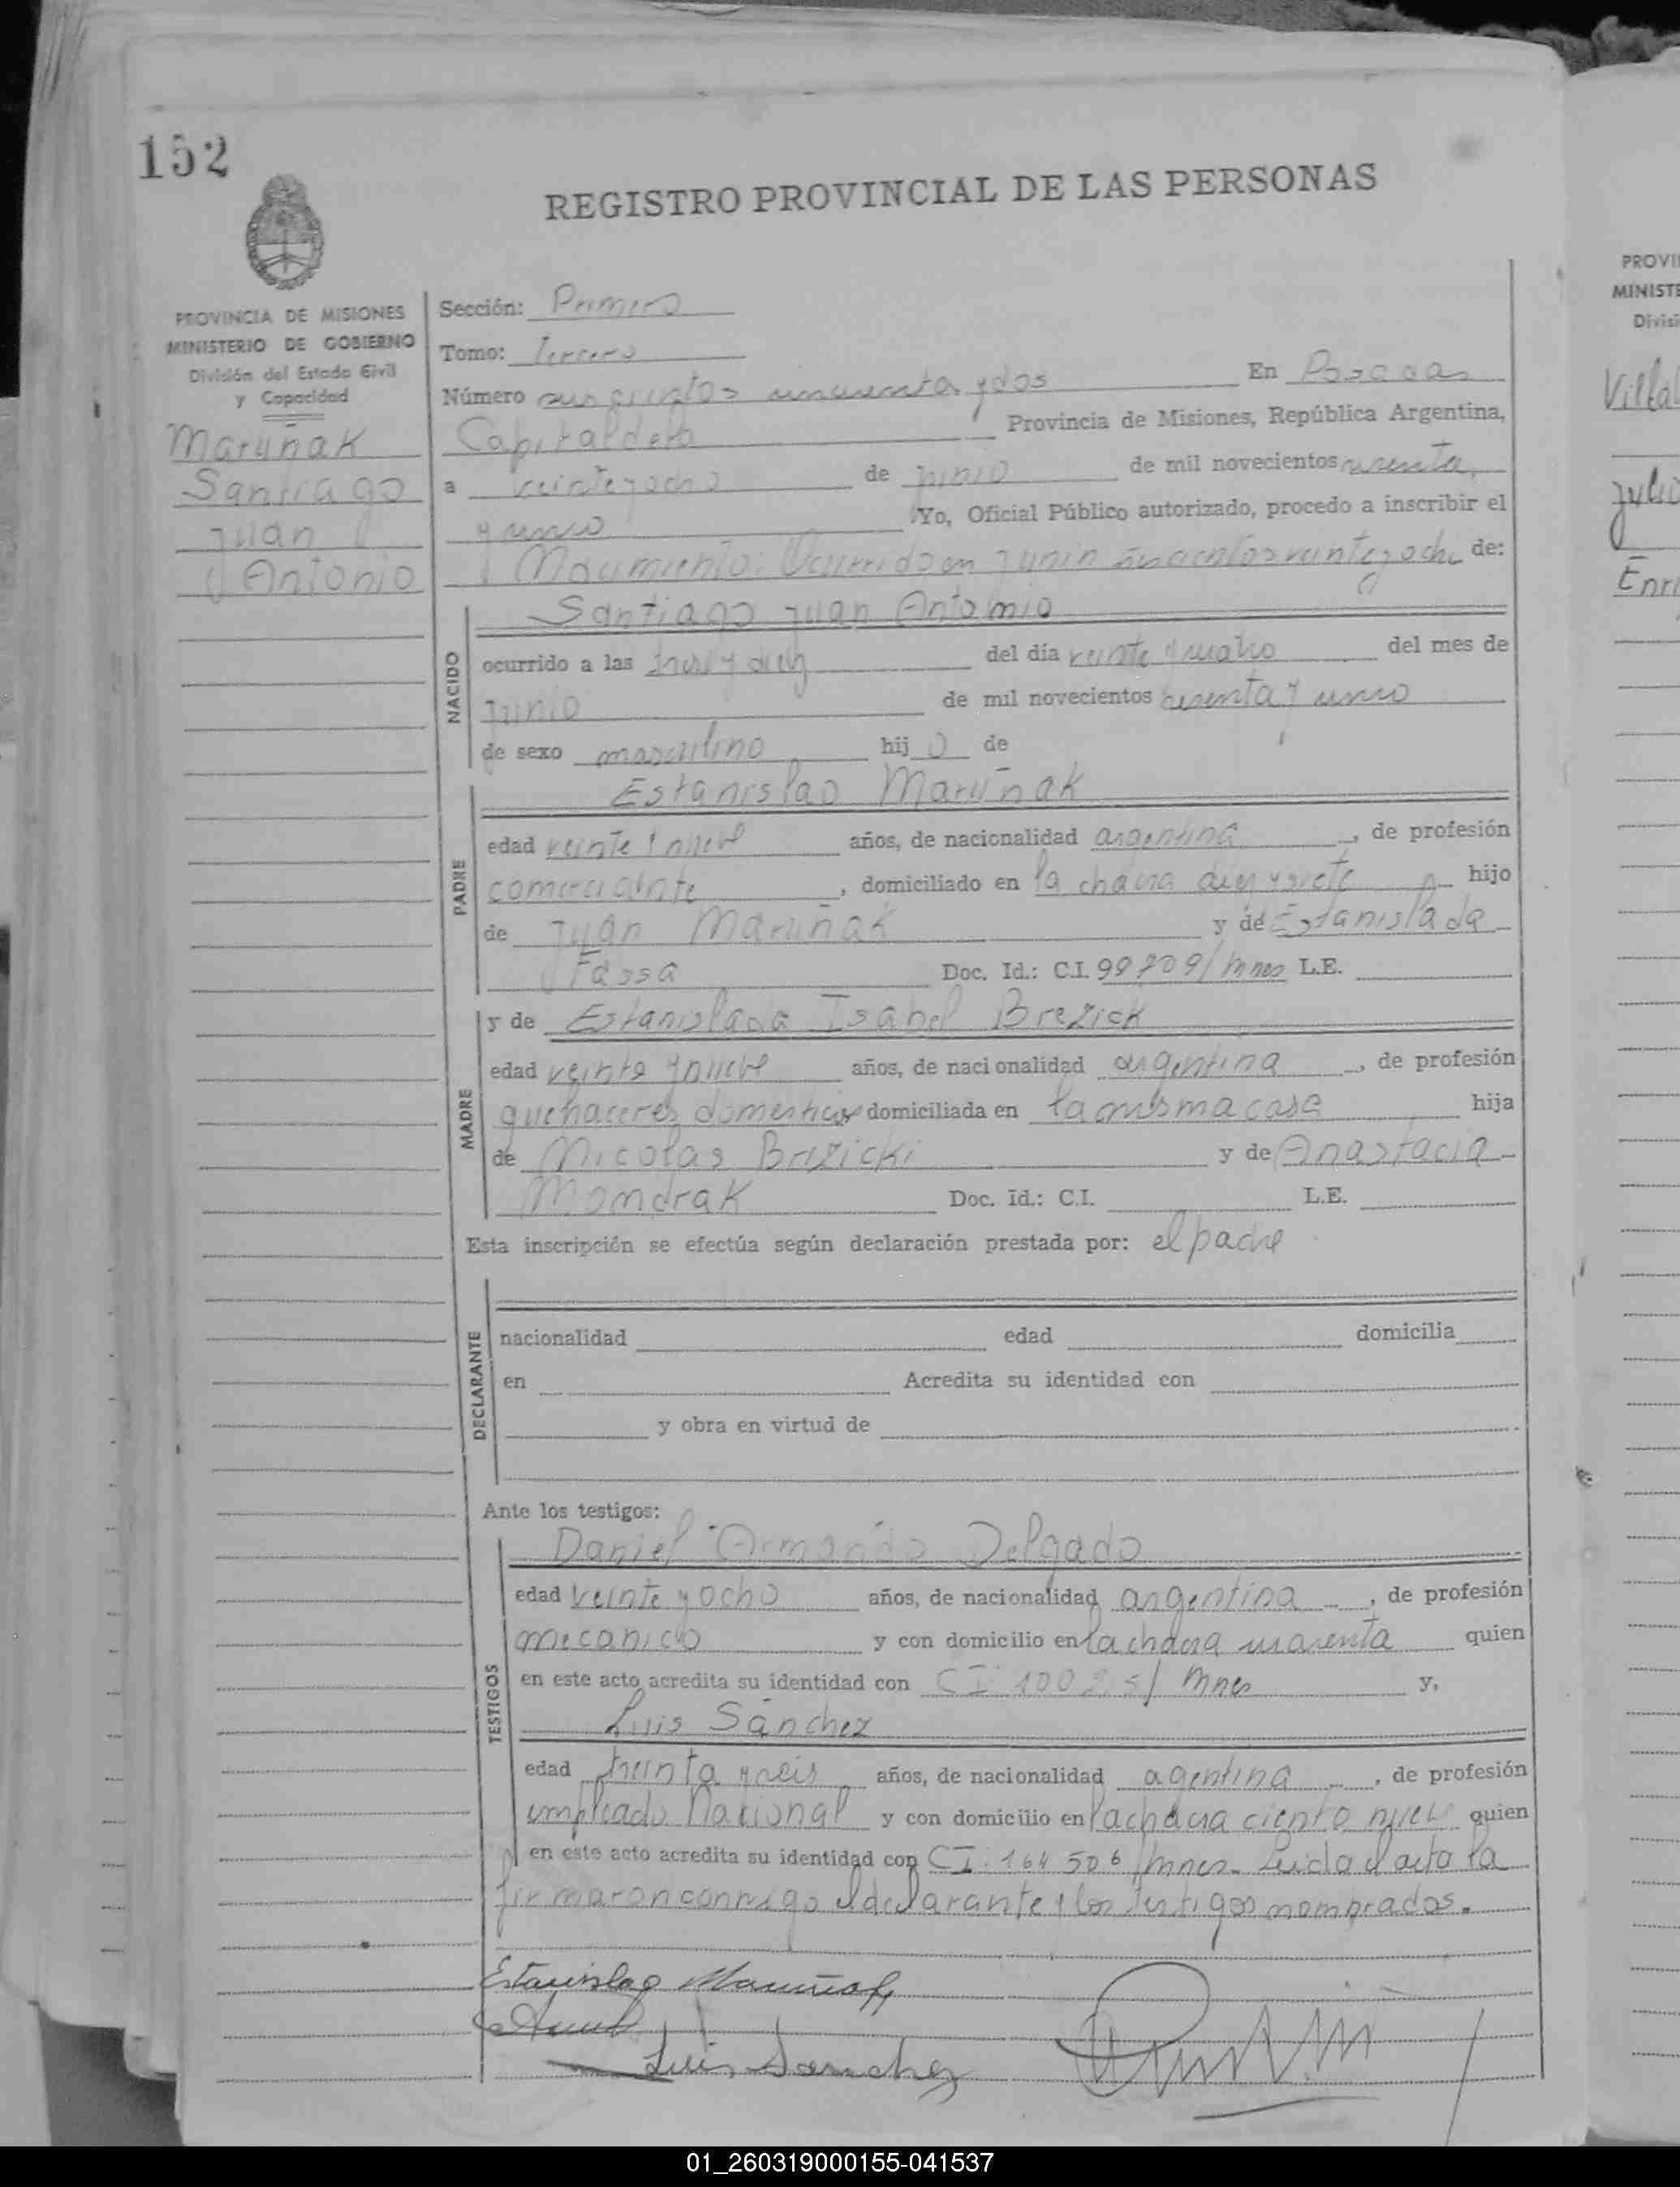 152
REGISTRO PROVINCIAL DE LAS PERSONAS
PROVINCIA DE MISIONES
MINISTERIO DE GOBIERNO
División del Estado Civil
y Capacidad
Maruñak
Santiago
Juan
Antonio
Sección: Primera
Tomo: Tercero
Número cincuenta y dos En Posadas
Capital de la Provincia de Misiones, República Argentina,
a veinteyocho de junio de mil novecientos sesenta
y uno Yo, Oficial Público autorizado, procedo a inscribir el
Nacimiento: Ocurrido en Junin veinteyocho de:
NACIDO
Santiago Juan Antonio
ocurrido a las y diez del día veinte y cuatro del mes de
junio de mil novecientos sesenta y uno
de sexo masculino hijo de
PADRE
Estanislao Maruñak
edad veinte y nueve años, de nacionalidad argentina, de profesión
comerciante, domiciliado en la chacra diez y siete hijo
de Juan Maruñak y de Estanislada
Fassa Doc. Id.: C.I. 99709/Mnes L.E.
MADRE
y de Estanislada Isabel Brezick
edad veinte y nueve años, de nacionalidad argentina, de profesión
quehaceres domesticos domiciliada en la misma casa hija
de Nicolas Brizicki y de Anastacia
Mondrak Doc. Id.: C.I. L.E.
Esta inscripción se efectúa según declaración prestada por: el padre
DECLARANTE
nacionalidad edad domicilia
en Acredita su identidad con
y obra en virtud de
Ante los testigos:
TESTIGOS
Daniel Armando Delgado
edad veinte y ocho años, de nacionalidad argentina, de profesión
mecanico y con domicilio en la chacra cuarenta quien
en este acto acredita su identidad con CI. Mnes y,
Luis Sánchez
edad treinta y seis años, de nacionalidad agentina, de profesión
empleado Nacional y con domicilio en la chacra ciento nueve quien
en este acto acredita su identidad con CI. 164506/Mnes. Leida el acta la
firmaron conmigo el declarante y los testigos nombrados.
Estanislao Maruñak
Luis Sanchez
PROVI
MINISTE
Divisi
Villal
Julio
Enri
01_260319000155-041537